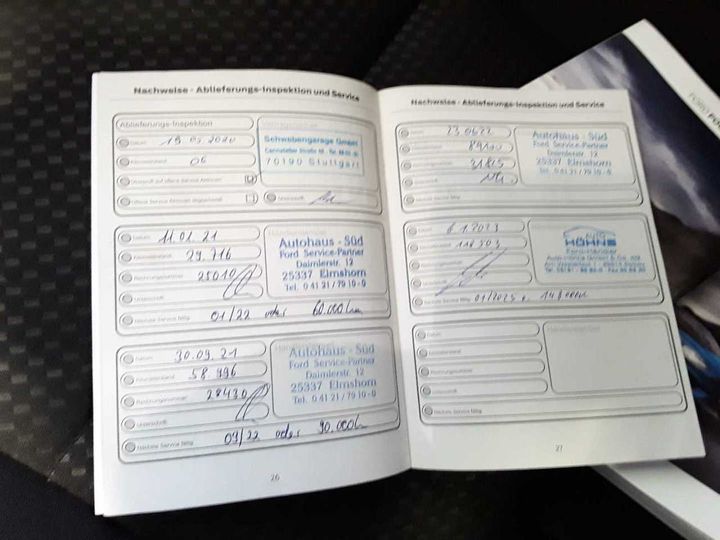 Nachweise - Ablieferungs-Inspektion und Service
Ablieferungs-Inspektion
Datum 19.05.2020
Kilometerstand 06
Überprüft auf offene Service Aktionen
Offene Service Aktionen abgeschlossen
Unterschrift
Schwabengarage GmbH
70190 Stuttgart
Datum 11.01.21
Kilometerstand 29.716
Rechnungsnummer 25010
Unterschrift
Nächste Service fällig 01/22 oder 60.000 km
Autohaus - Süd
Ford Service-Partner
Daimlerstr. 12
25337 Elmshorn
Tel. 0 41 21 / 79 10 - 0
Datum 30.09.21
Kilometerstand 58.996
Rechnungsnummer 28430
Unterschrift
Nächste Service fällig 09/22 oder 90.000 km
Autohaus - Süd
Ford Service-Partner
Daimlerstr. 12
25337 Elmshorn
Tel. 0 41 21 / 79 10 - 0
26
Nachweise - Ablieferungs-Inspektion und Service
Datum 23.06.22
Kilometerstand
Rechnungsnummer
Unterschrift
Nächste Service fällig
Autohaus - Süd
Ford Service-Partner
Daimlerstr. 12
25337 Elmshorn
Tel. 0 41 21 / 79 10 - 0
Datum 6.1.2023
Kilometerstand
Unterschrift
Nächste Service fällig 01/2025
AUTO
HÖHNE
Datum
Kilometerstand
Rechnungsnummer
Unterschrift
Nächste Service fällig
27
FORD